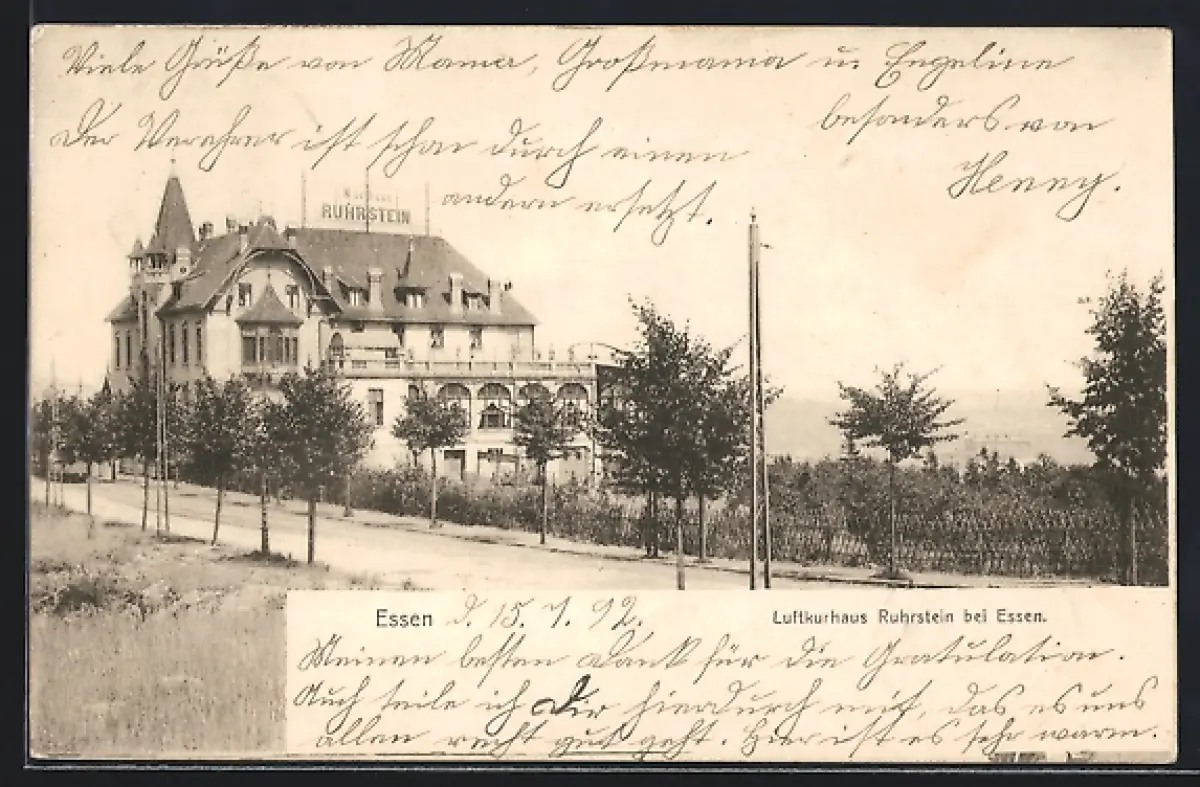 Viele Grüße von Mama, Großmama u. Engeline
besonders von
Henny.
Der Verehrer ist schon durch einen
andern ersetzt.
RUHRSTEIN
Essen d. 15. 7. 92.
Luftkurhaus Ruhrstein bei Essen.
Meinen besten Dank für die Gratulation.
Auch teile ich Dir hierdurch mit, das es uns
allen recht gut geht. Hier ist es sehr warm.